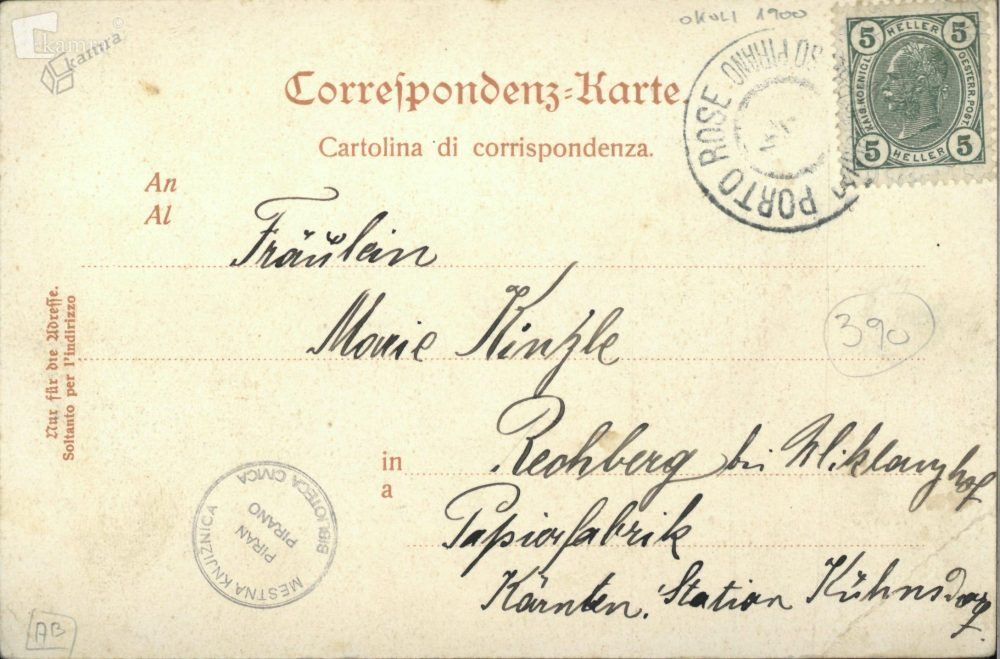 kamra
kamra
OKOLI 1900
5 HELLER 5
KAIS. KOENIGL. OESTERR. POST.
5 HELLER 5
PORTO ROSE
SO PIRANO
Correſpondenz-Karte.
Cartolina di corrispondenza.
An
Al
Fräulein
Marie Kinzle
390
in
a
Rechberg bei Miklauzhof
Papierfabrik
Kärnten, Station Kühnsdorf
Nur für die Adreſſe.
Soltanto per l'indirizzo
MESTNA KNJIŽNICA
PIRAN
PIRANO
BIBLIOTECA CIVICA
AB